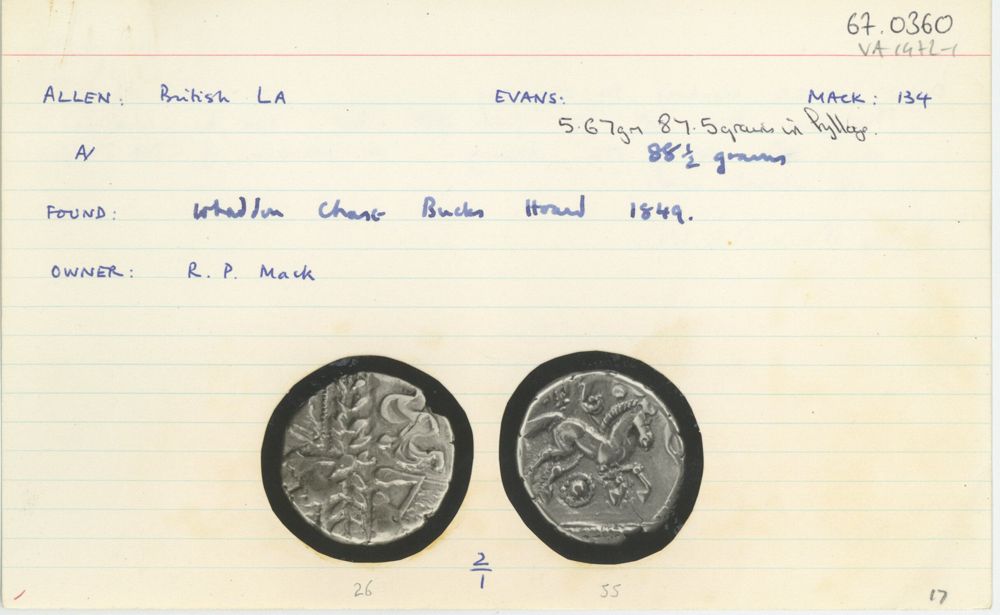 67.0360
VA 1972-1
ALLEN: British LA EVANS: MACK: 134
5.67gm 87.5grains in
N 88½ grains
FOUND: Whaddon Chase Bucks Hoard 1849.
OWNER: R. P. Mack
2/1
26 55 17